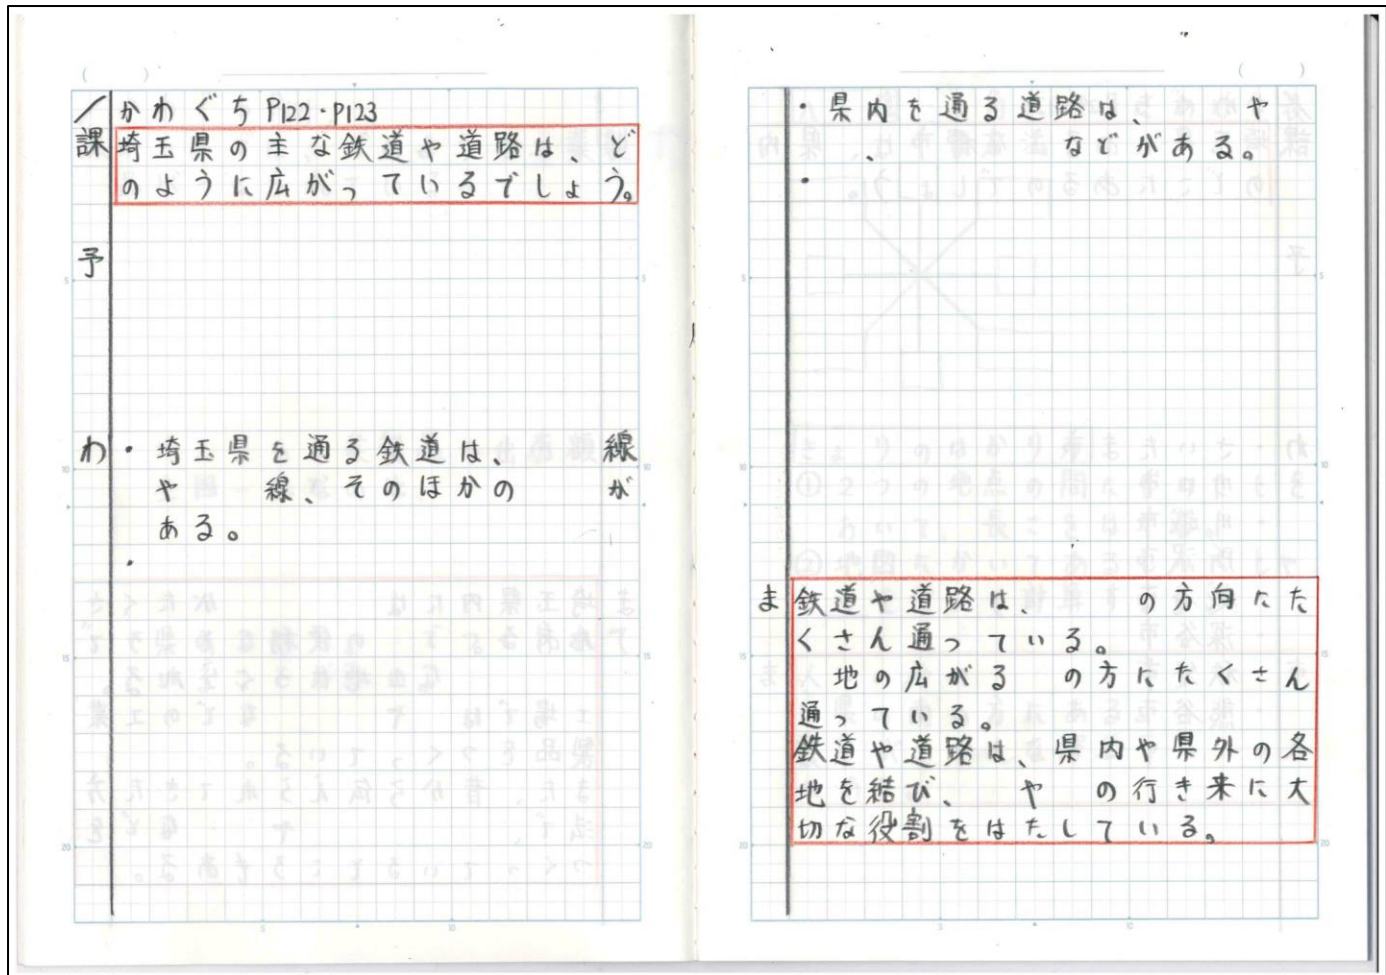 ／ かわぐち P122・P123
課 埼玉県の主な鉄道や道路は、ど
のように広がっているでしょう。
予
わ ・埼玉県を通る鉄道は、　　線
や　　線、そのほかの　　が
ある。
・
・県内を通る道路は、　　や
　、　　　　などがある。
・
ま 鉄道や道路は、　　の方向にた
くさん通っている。
　地の広がる　の方にたくさん
通っている。
鉄道や道路は、県内や県外の各
地を結び、　や　の行き来に大
切な役割をはたしている。